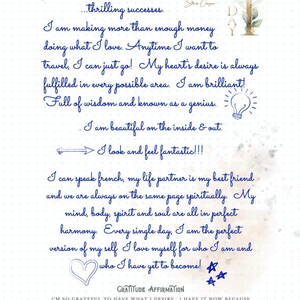 ...thrilling successes.
I am making more than enough money
doing what I love. Anytime I want to
travel, I can just go! My heart's desire is always
fulfilled in every possible area. I am brilliant!
Full of wisdom and known as a genius.
I am beautiful on the inside & out.
I look and feel fantastic!!!
I can speak french, my life partner is my best friend
and we are always on the same page spiritually. My
mind, body, spirit and soul are all in perfect
harmony. Every single day, I am the perfect
version of my self. I love myself for who I am and
who I have yet to become!
Gratitude Affirmation
I'm so grateful to have what I desire. I have it now because